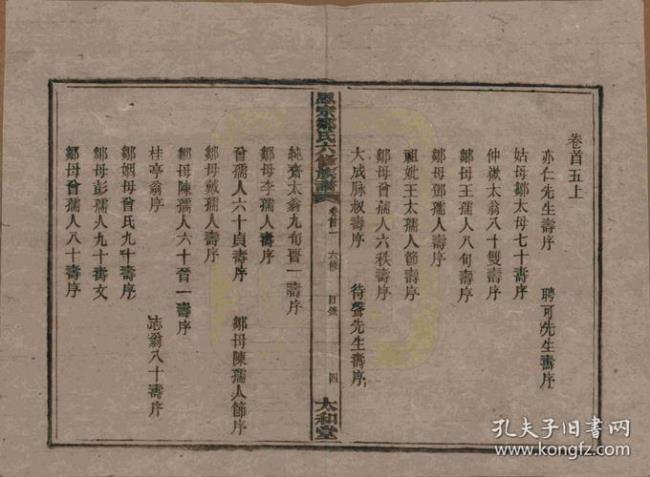 卷首五上
亦仁先生壽序 聘可先生壽序
姑母鄒太母七十壽序
仲漱太翁八十雙壽序
鄒母王孺人八旬壽序
鄒母鄧孺人壽序
祖妣王太孺人節壽序
鄒母曾孺人六秩壽序
大咸脉叔壽序 待聲先生壽序
宗鄒氏六修族譜 卷首一 六修 目錄 四 太和堂
純齋太翁九旬晋一壽序
鄒母李孺人壽序
曾孺人六十貞壽序 鄒母陳孺人節序
鄒母戴孺人壽序
鄒母陳孺人六十晋一壽序
桂亭翁序 志翁八十壽序
鄒姻母曾氏九十壽序
鄒母彭孺人九十壽文
鄒母曾孺人八十壽序
孔夫子旧书网
www.kongfz.com